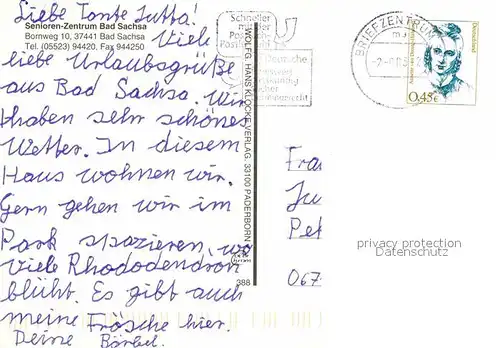 Liebe Tante Jutta!
Senioren-Zentrum Bad Sachsa
Bornweg 10, 37441 Bad Sachsa
Tel. (05523) 94420. Fax 944250
Viele
liebe Urlaubsgrüße
aus Bad Sachsa. Wir
haben sehr schönes
Wetter. In diesem
Haus wohnen wir.
Gern gehen wir im
Park spazieren, wo
viele Rhododendron
blüht. Es gibt auch
meine Frösche hier.
Deine Bärbel.
WOLFG. HANS KLOCKE VERLAG, 33100 PADERBORN
388
Schneller
mit der
BRIEFZENTRUM
Deutschland
0,45€
Fra
Ju
Pet
067
privacy protection
Datenschutz